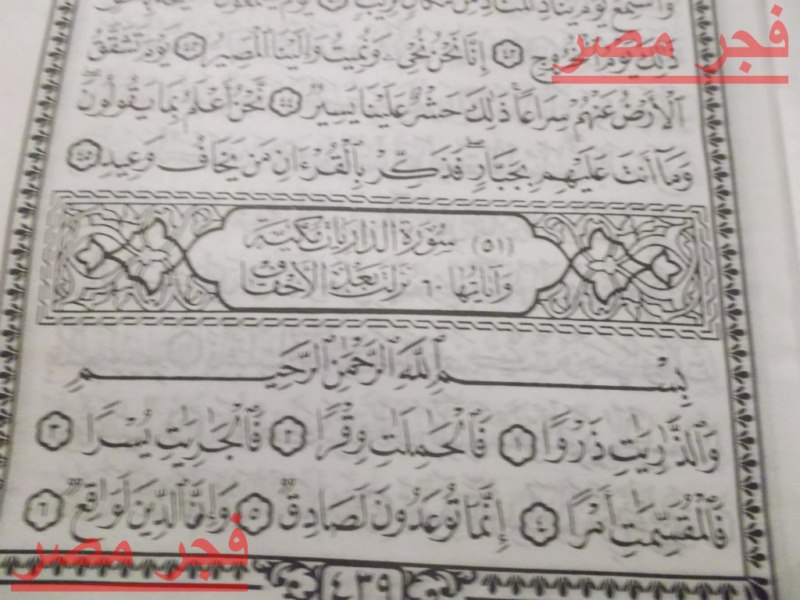 واستمع يوم يناد المناد من مكان قريب
ذَٰلِكَ يَوْمُ الْخُرُوجِ ٤٢ إِنَّا نَحْنُ نُحْيِۦ وَنُمِيتُ وَإِلَيْنَا الْمَصِيرُ ٤٣ يَوْمَ تَشَقَّقُ
فجر مصر
الْأَرْضُ عَنْهُمْ سِرَاعًا ذَٰلِكَ حَشْرٌ عَلَيْنَا يَسِيرٌ ٤٤ نَّحْنُ أَعْلَمُ بِمَا يَقُولُونَ
وَمَا أَنتَ عَلَيْهِم بِجَبَّارٍ فَذَكِّرْ بِالْقُرْءَانِ مَن يَخَافُ وَعِيدِ ٤٥
(٥١) سُورَةُ الذَّارِيَاتِ مَكِّيَّة
وَآيَاتُهَا ٦٠ نَزَلَتْ بَعْدَ الأَحْقَافِ
بِسْمِ اللَّهِ الرَّحْمَٰنِ الرَّحِيمِ
وَالذَّٰرِيَٰتِ ذَرْوًا ١ فَالْحَٰمِلَٰتِ وِقْرًا ٢ فَالْجَٰرِيَٰتِ يُسْرًا ٣
فَالْمُقَسِّمَٰتِ أَمْرًا ٤ إِنَّمَا تُوعَدُونَ لَصَادِقٌ ٥ وَإِنَّ الدِّينَ لَوَٰقِعٌ ٦
فجر مصر
٤٣٩